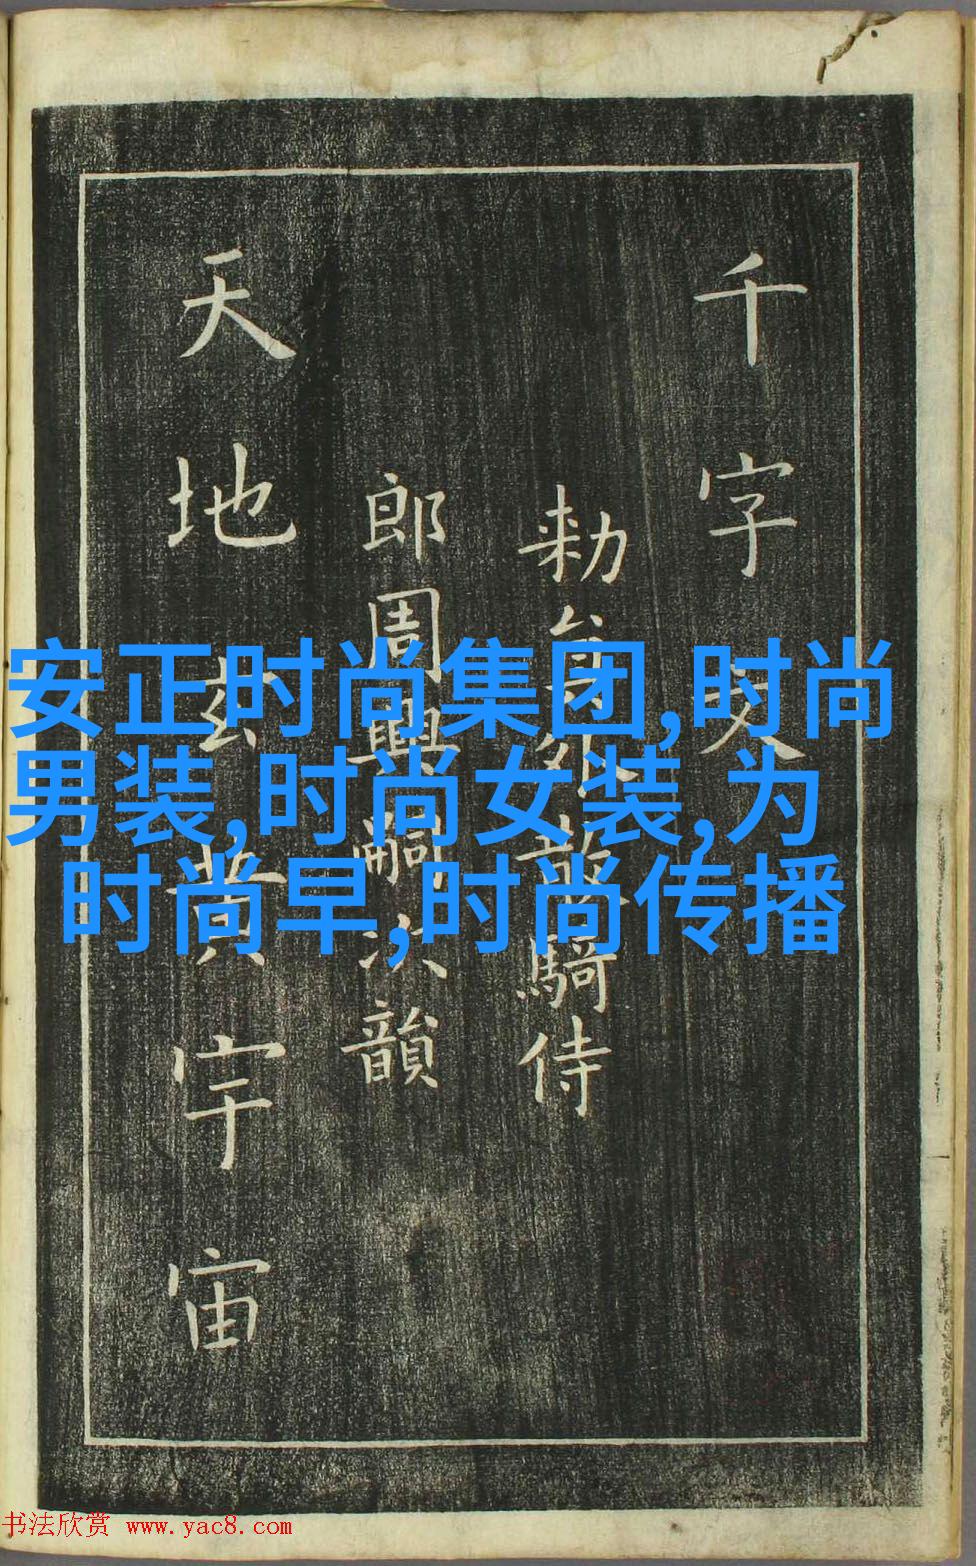 千字文
勅員外散騎侍
郎周興嗣次韻
天地玄黃宇宙
安正时尚集团,时尚
男装,时尚女装,为
时尚早,时尚传播
书法欣赏 www.yac8.com